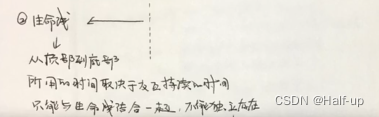 ② 生命线
从顶部到底部
所用的时间取决于交互持续的时间
只能与生命线结合一起，不能独立存在
CSDN @Half-up